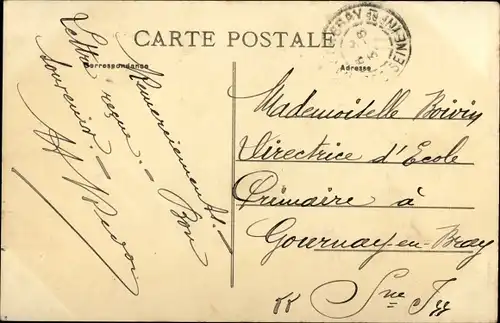 CARTE POSTALE
Correspondance
Adresse
Lettre reçue. — Remerciements. —
Bon
souvenir. —
Mademoiselle Boivin
Directrice d'Ecole
Primaire à
Gournay-en-Bray
Sne Ire